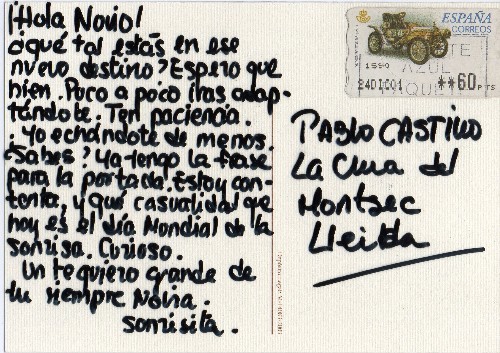 ¡Hola Novio!
¿qué tal estás en ese
nuevo destino? Espero que
bien. Poco a poco irás adap-
tándote. Ten paciencia.
. Yo echándote de menos.
¿Sabes? Ya tengo la frase
para la portada. Estoy con-
tenta, y qué casualidad que
hoy es el día Mundial de la
sonrisa. Curioso.
Un te quiero grande de
tu siempre Novia.
sonrisita.
ESPAÑA
CORREOS
1590
AZUL
24DIC01
**60 PTS
PABLO CASTILLO
La Clua del
Montsec
Lleida